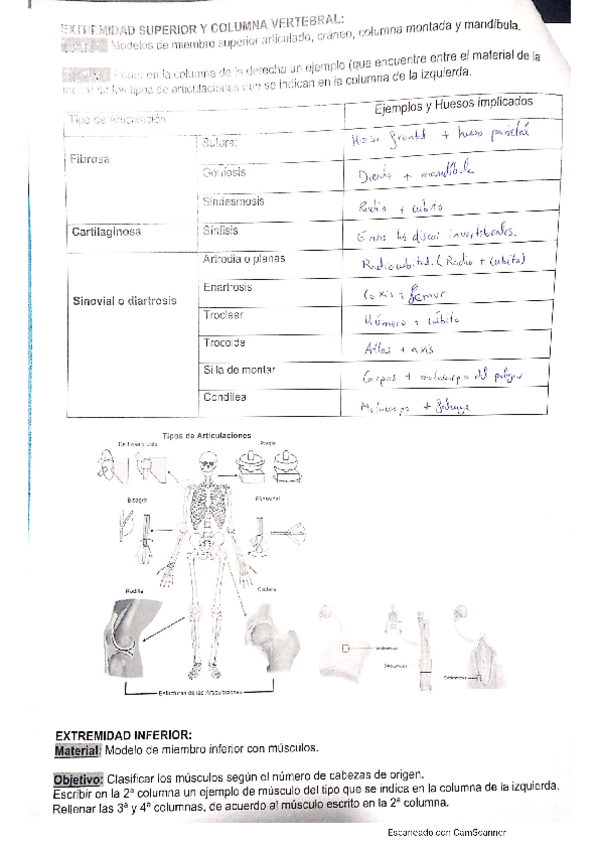 EXTREMIDAD SUPERIOR Y COLUMNA VERTEBRAL:
Modelos de miembro superior articulado, cráneo, columna montada y mandíbula.
en la columna de la derecha un ejemplo (que encuentre entre el material de la
de los tipos de articulaciones que se indican en la columna de la izquierda.
Tipo de Articulación
Ejemplos y Huesos implicados
Fibrosa
Sutura:
Hueso frontal + hueso parietal
Gonfosis
Diente + mandíbula
Sindesmosis
Radio + cúbito
Cartilaginosa
Sínfisis
Entre los discos invertebrales.
Sinovial o diartrosis
Artrodia o planas
Radiocubital. (Radio + cúbito)
Enartrosis
Coxis + femur
Troclear
Húmero + cúbito
Trocoide
Atlas + axis
Silla de montar
Carpos + metacarpo del pulgar
Condílea
Metacarpo + falange
Tipos de Articulaciones
Pivote
Bisagra
Rodilla
Cadera
Estructuras de las Articulaciones
EXTREMIDAD INFERIOR:
Material: Modelo de miembro inferior con músculos.
Objetivo: Clasificar los músculos según el número de cabezas de origen.
Escribir en la 2ª columna un ejemplo de músculo del tipo que se indica en la columna de la izquierda.
Rellenar las 3ª y 4ª columnas, de acuerdo al músculo escrito en la 2ª columna.
Escaneado con CamScanner